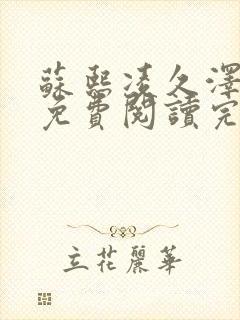 蘇熙凌久澤
免費閱讀完
立花麗華